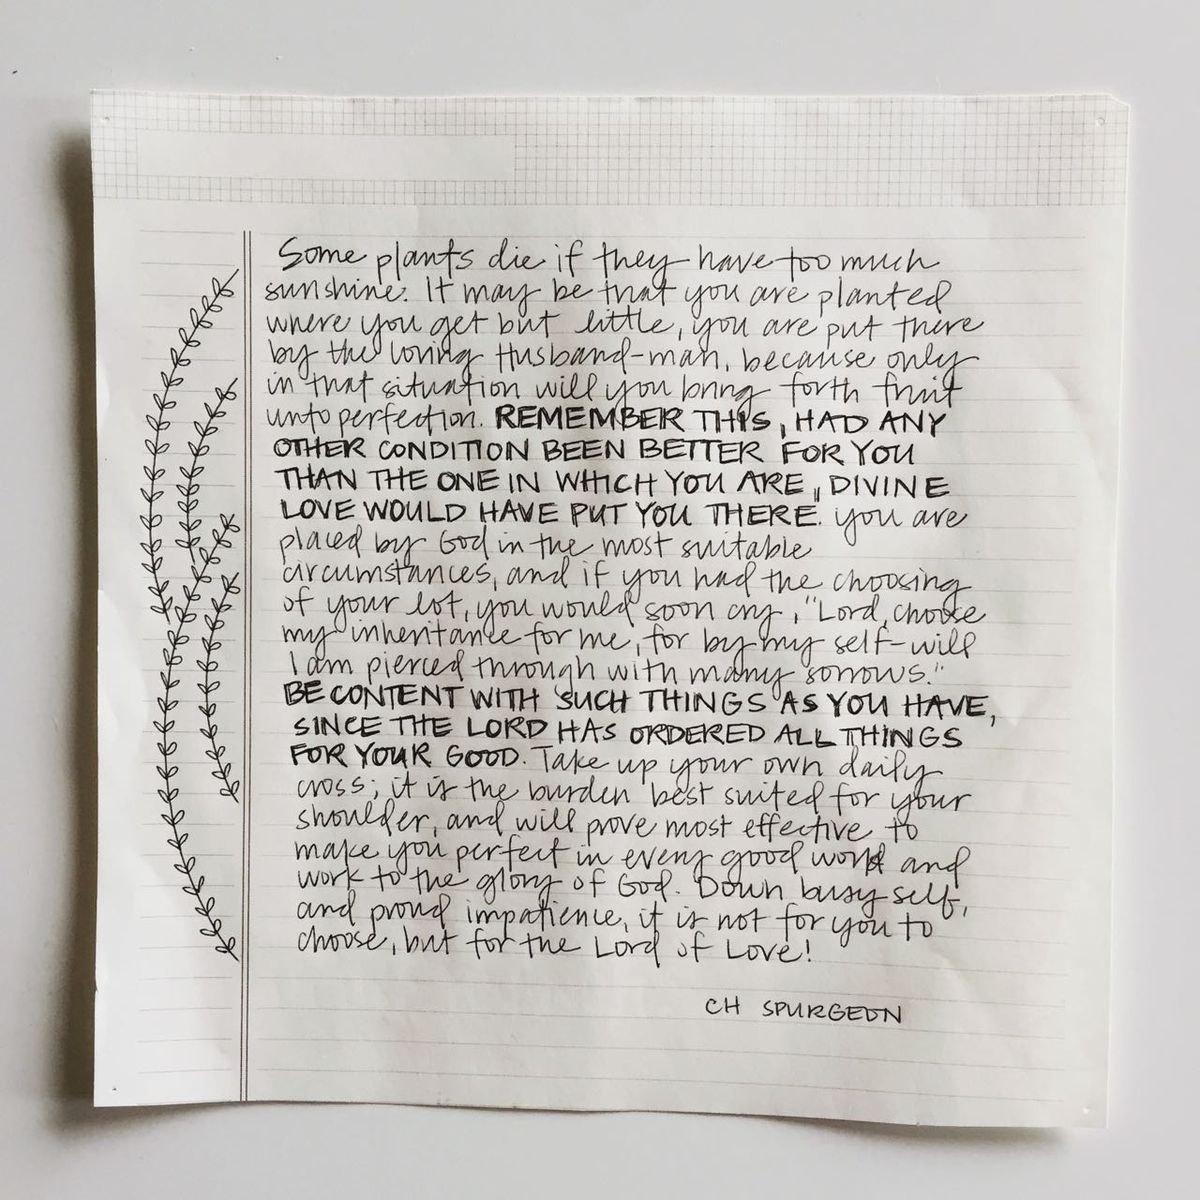 Some plants die if they have too much
sunshine. It may be that you are planted
where you get but little, you are put there
by the loving Husband-man, because only
in that situation will you bring forth fruit
unto perfection. REMEMBER THIS, HAD ANY
OTHER CONDITION BEEN BETTER FOR YOU
THAN THE ONE IN WHICH YOU ARE, DIVINE
LOVE WOULD HAVE PUT YOU THERE. you are
placed by God in the most suitable
circumstances, and if you had the choosing
of your lot, you would soon cry, "Lord, choose
my inheritance for me, for by my self-will
I am pierced through with many sorrows."
BE CONTENT WITH SUCH THINGS AS YOU HAVE,
SINCE THE LORD HAS ORDERED ALL THINGS
FOR YOUR GOOD. Take up your own daily
cross; it is the burden best suited for your
shoulder, and will prove most effective to
make you perfect in every good word and
work to the glory of God. Down busy self,
and proud impatience, it is not for you to
choose, but for the Lord of Love!
CH SPURGEON